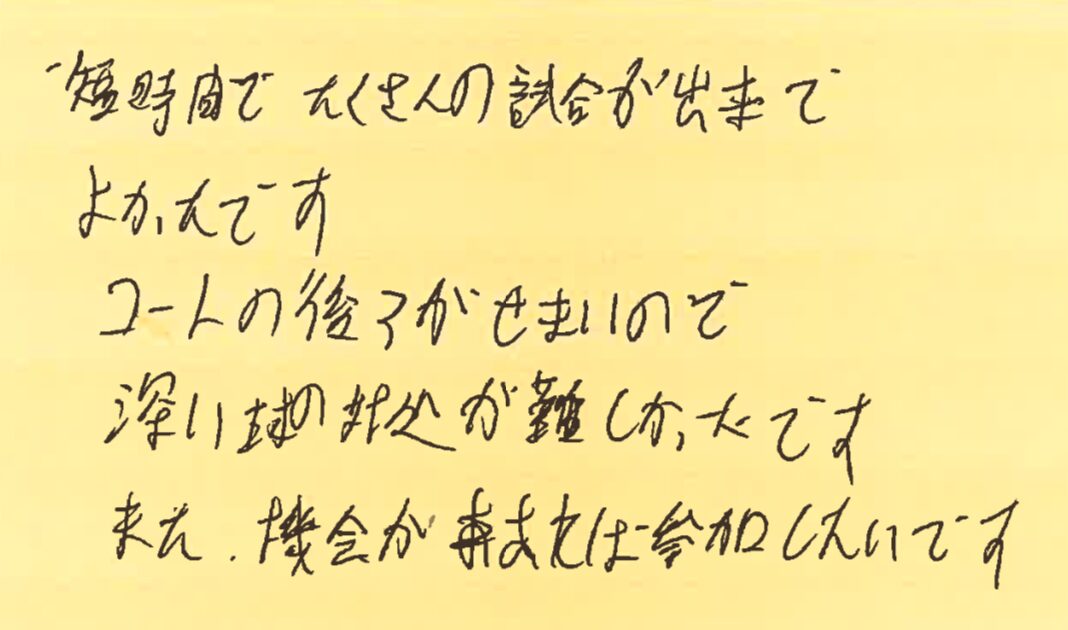 短時間で たくさんの試合が出来て
よかったです
コートの後ろがせまいので
深い球の対処が難しかったです
また、機会があれば参加したいです